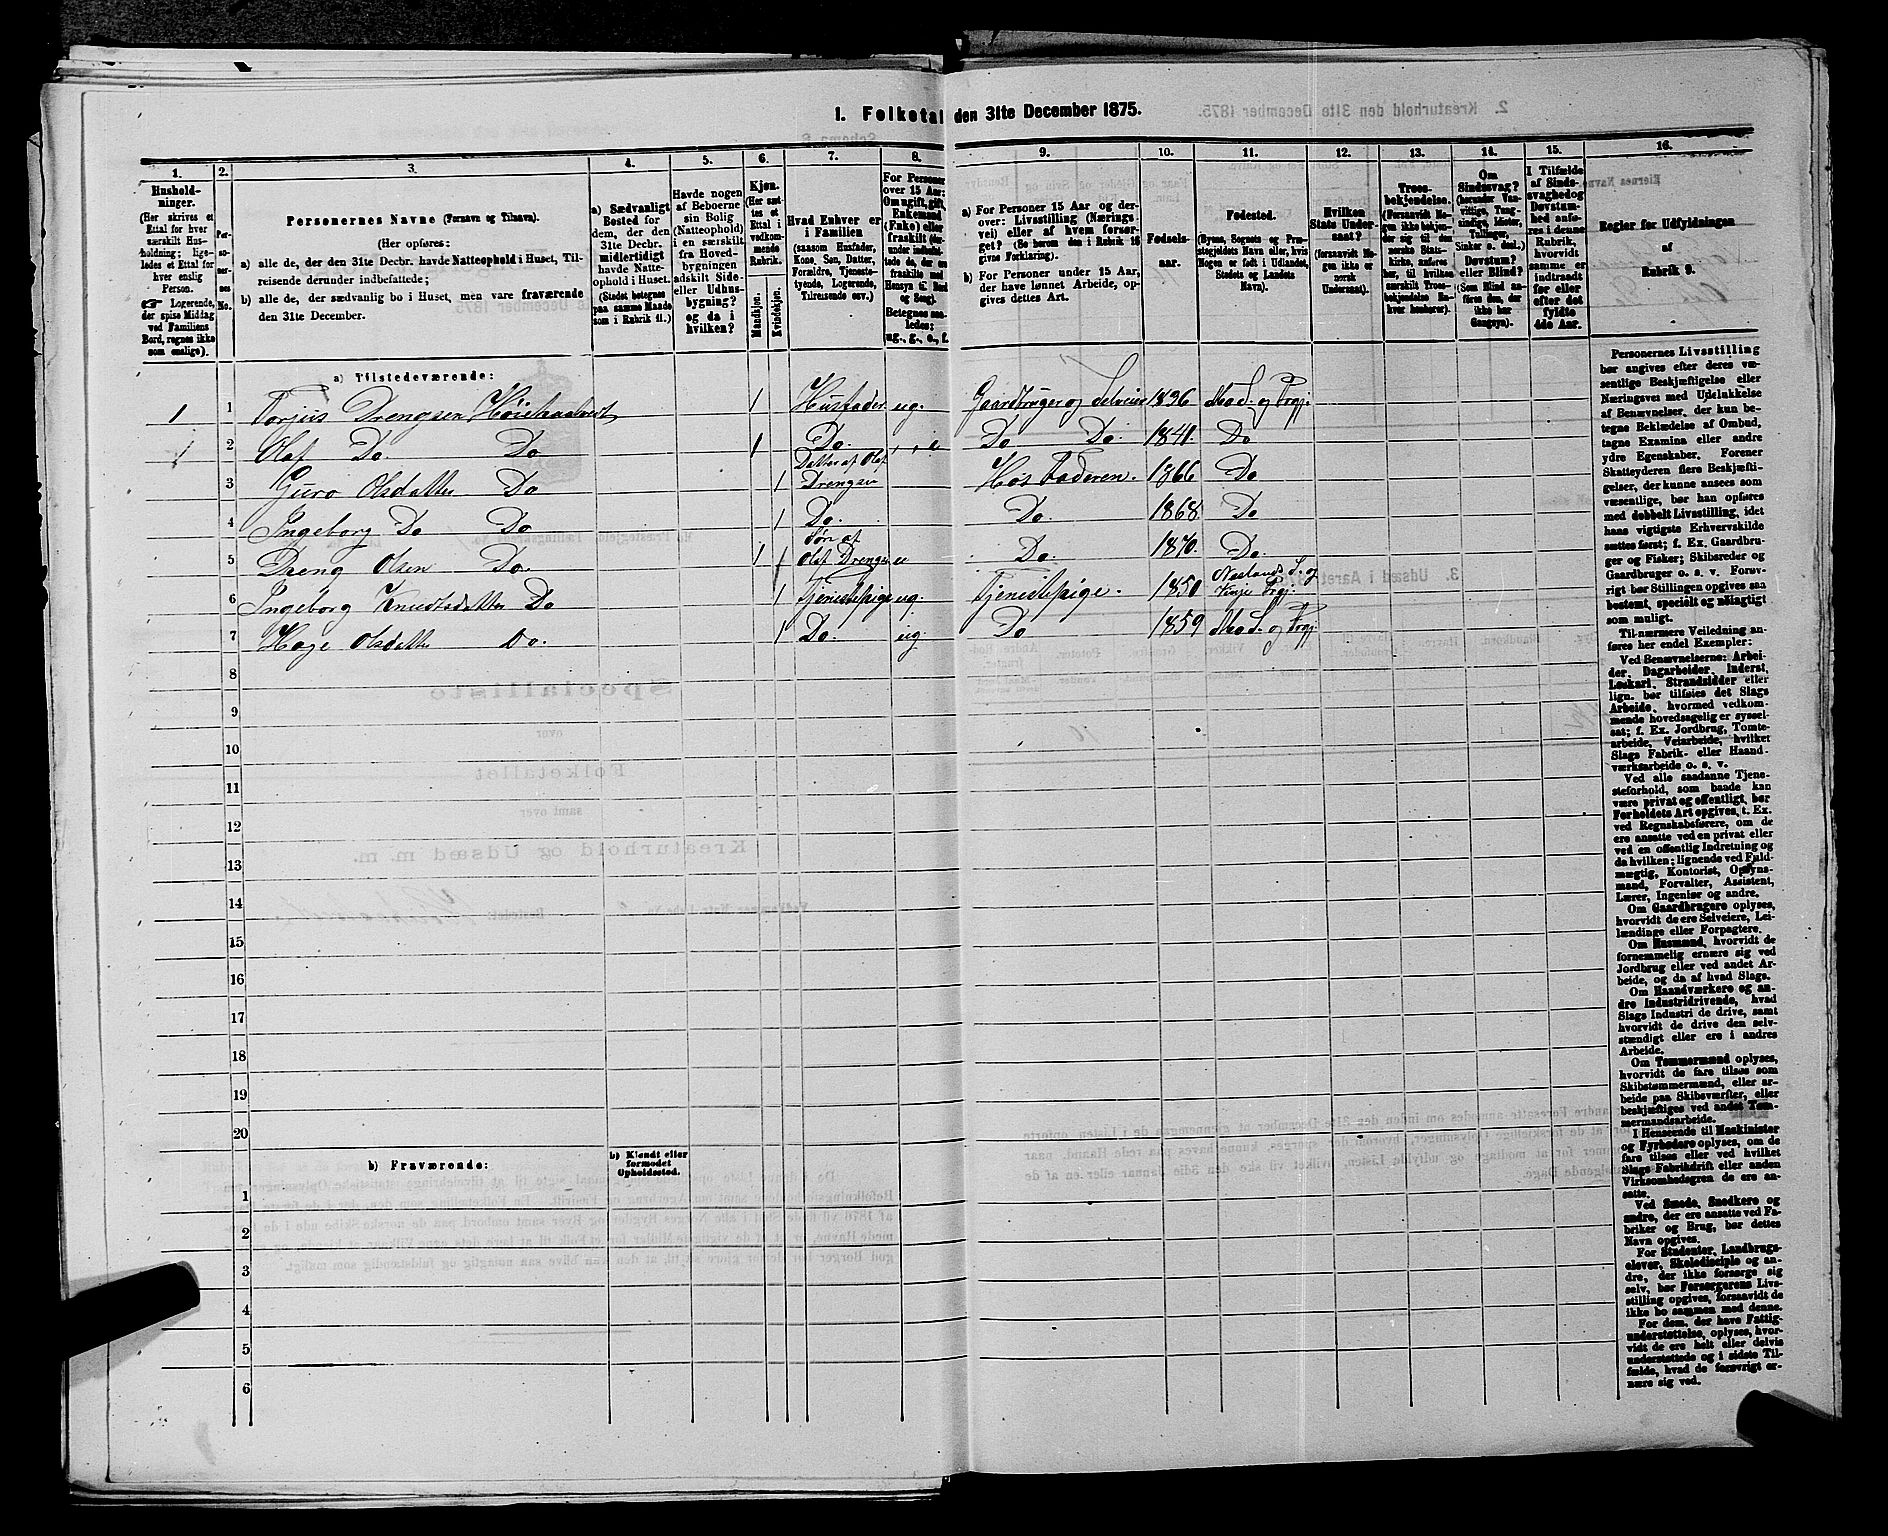 1. Folketal den 31te December 1875.
1. 2. 3. 4. 5. 6. 7. 8. 9. 10. 11. 12. 13. 14. 15. 16.
Hushold-
ninger.
(Her skrives et
Ettal for hver
særskilt Hus-
holdning; lige-
ledes et Ettal for
hver enslig
Person.
☞ Logerende,
der spise Middag
ved Familiens
Bord, regnes ikke
som enslige).
Per-
so-
ner-
nes
No.
Personernes Navne (Fornavn og Tilnavn).
(Her opføres:
a) alle de, der den 31te Decbr. havde Natteophold i Huset, Til-
reisende derunder indbefattede;
b) alle de, der sædvanlig bo i Huset, men vare fraværende
den 31te December.
a) Sædvanligt
Bosted for
dem, der den
31te Decbr.
midlertidigt
havde Natte-
ophold i Huset.
(Stedet betegnes
paa samme Maade
som i Rubrik 11.)
Havde nogen
af Beboerne
sin Bolig
(Natteophold)
i en særskilt
fra Hoved-
bygningen
adskilt Side-
eller Udhus-
bygning?
og da i
hvilken?
Kjøn.
(Her sæt-
tes et
Ettal i
vedkom-
mende
Rubrik.
Mandkjøn.
Kvindekjøn.
Hvad Enhver er
i Familien
(saasom Husfader,
Kone, Søn, Datter,
Forældre, Tjeneste-
tyende, Logerende,
Tilreisende osv.)
For Personer
over 15 Aar:
Om ugift, gift,
Enkemand
(Enke) eller
fraskilt
Betegnes saa-
ledes:
ug., g., e., f.
a) For Personer 15 Aar og der-
over: Livsstilling (Nærings-
vei) eller af hvem forsør-
get? (Se herom den i Rubrik 16
givne Forklaring).
b) For Personer under 15 Aar,
der have lønnet Arbeide, op-
gives dettes Art.
Fødsels-
aar.
Fødested.
(Byens, Sognets og Præ-
stegjeldets Navn eller, hvis
Nogen er født i Udlandet,
Stedets og Landets
Navn).
Hvilken
Stats Under-
saat?
(forsaavidt No-
gen ikke er
norsk
Undersaat).
Troes-
bekjendelse.
(Forsaavidt No-
gen ikke bekjen-
der sig til den
norske Stats-
kirke, anføres
her, til hvilken
særskilt Troes-
bekjendelse En-
hver henhører).
Om
Sindssvag?
(herunder Van-
vittige, Tung-
sindige, Idioter,
Tullinger,
Sinker o. desl.)
Døvstum?
eller Blind?
(Som Blind an-
føres den, der
ikke har
Gangsyn).
I Tilfælde
af Sinds-
svaghed og
Døvstum-
hed anfø-
res i denne
Rubrik,
hvorvidt
samme er
indtraadt
før eller
efter det
fyldte
4de Aar.
Regler for Udfyldningen
af
Rubrik 9.
a) Tilstedeværende:
1 1 Torjus Drengsen 1 Husfader ug. Gaardbruger og Selveier 1836 Mo S. og Prgj.
1 2 Olaf Do Do 1 Do. e Do Do. 1841. Do
3 Guro Olsdatter Do 1 Datter af Olaf
Drengsen Hos Faderen. 1866 Do
4 Ingeborg Do Do 1 Do. Do. 1868 Do
5 Dreng Olsen Do. 1 Søn af
Olaf Drengsen Do. 1870. Do.
6 Ingeborg Knudsdatter Do 1 Tjenestepige ug. Tjenestepige. 1850 S. og
Vinje Prgj.
7 Hæge Olsdatter Do. 1 Do. ug. Do 1859 Mo S. og Prgj.
8
9
10
11
12
13
14
15
16
17
18
19
20
b) Fraværende:
b) Kjendt eller
formodet
Opholdssted.
1
2
3
4
5
6
Personernes Livsstilling
bør angives efter deres væ-
sentlige Beskjæftigelse eller
Næringsvei med Udelukkelse
af Benævnelser, der kun be-
tegne Beklædelse af Ombud,
tagne Examina eller andre
ydre Egenskaber. Forener
Skatteyderen flere Beskjæfti-
gelser, der kunne ansees som
væsentlige, bør han opføres
med dobbelt Livsstilling, idet
hans vigtigste Erhvervskilde
sættes først; f. Ex. Gaardbru-
ger og Fisker; Skibsreder og
Gaardbruger o. s. v. Forøv-
rigt bør Stillingen opgives saa
bestemt, specielt og nøiagtigt
som muligt.
Til nærmere Veiledning an-
føres her endel Exempler:
Ved Benævnelserne: Arbei-
der, Dagarbeider, Inderst,
Løskarl, Strandsidder eller
lign. bør tilføies det Slags
Arbeide, hvormed vedkom-
mende hovedsagelig er syssel-
sat; f. Ex. Jordbrug, Tomte-
arbeide, Veiarbeide, hvilket
Slags Fabrik- eller Haand-
værksarbeide o. s. v.
Ved alle saadanne Tjene-
steforhold, som baade kan
være privat og offentligt, bør
Forholdets Art opgives, t. Ex.
ved Regnskabsførere, om de
ere ansatte ved en privat eller
ved en offentlig Indretning og
da hvilken; lignende ved Fuld-
mægtig, Kontorist, Opsyns-
mand, Forvalter, Assistent,
Lærer, Ingeniør og andre.
Om Gaardbrugere oplyses,
hvorvidt de ere Selveiere, Lei-
lændinge eller Forpagtere.
Om Husmænd, hvorvidt de
fornemmelig ernære sig ved
Jordbrug eller ved andet Ar-
beide, og da af hvad Slags.
Om Haandværkere og an-
dre Industridrivende, hvad
Slags Industri de drive, samt
hvorvidt de drive den selv-
stændigt eller ere i andres
Arbeide.
Om Tømmermænd oplyses,
hvorvidt de fare tilsøs som
Skibstømmermænd, eller ar-
beide paa Skibsværfter, eller
beskjæftiges ved andet Tøm-
mermandsarbeide.
I Henseende til Maskinister
og Fyrbødere oplyses, om de
fare tilsøs eller ved hvilket
Slags Fabrikdrift eller anden
Virksomhedsgren de ere an-
satte.
Ved Smede, Snedkere og
andre, der ere ansatte ved Fa-
briker og Brug, bør dettes
Navn opgives.
For Studenter, Landbrugs-
elever, Skoledisciple og an-
dre, der ikke forsørge sig
selv, bør Forsørgerens Livs-
stilling opgives, forsaavidt de
ikke bo sammen med denne.
For dem, der have Fattig-
understøttelse, oplyses, hvor-
vidt de ere helt eller delvis
understøttede og i sidste Til-
fælde, hvad de forøvrigt er-
nære sig ved.